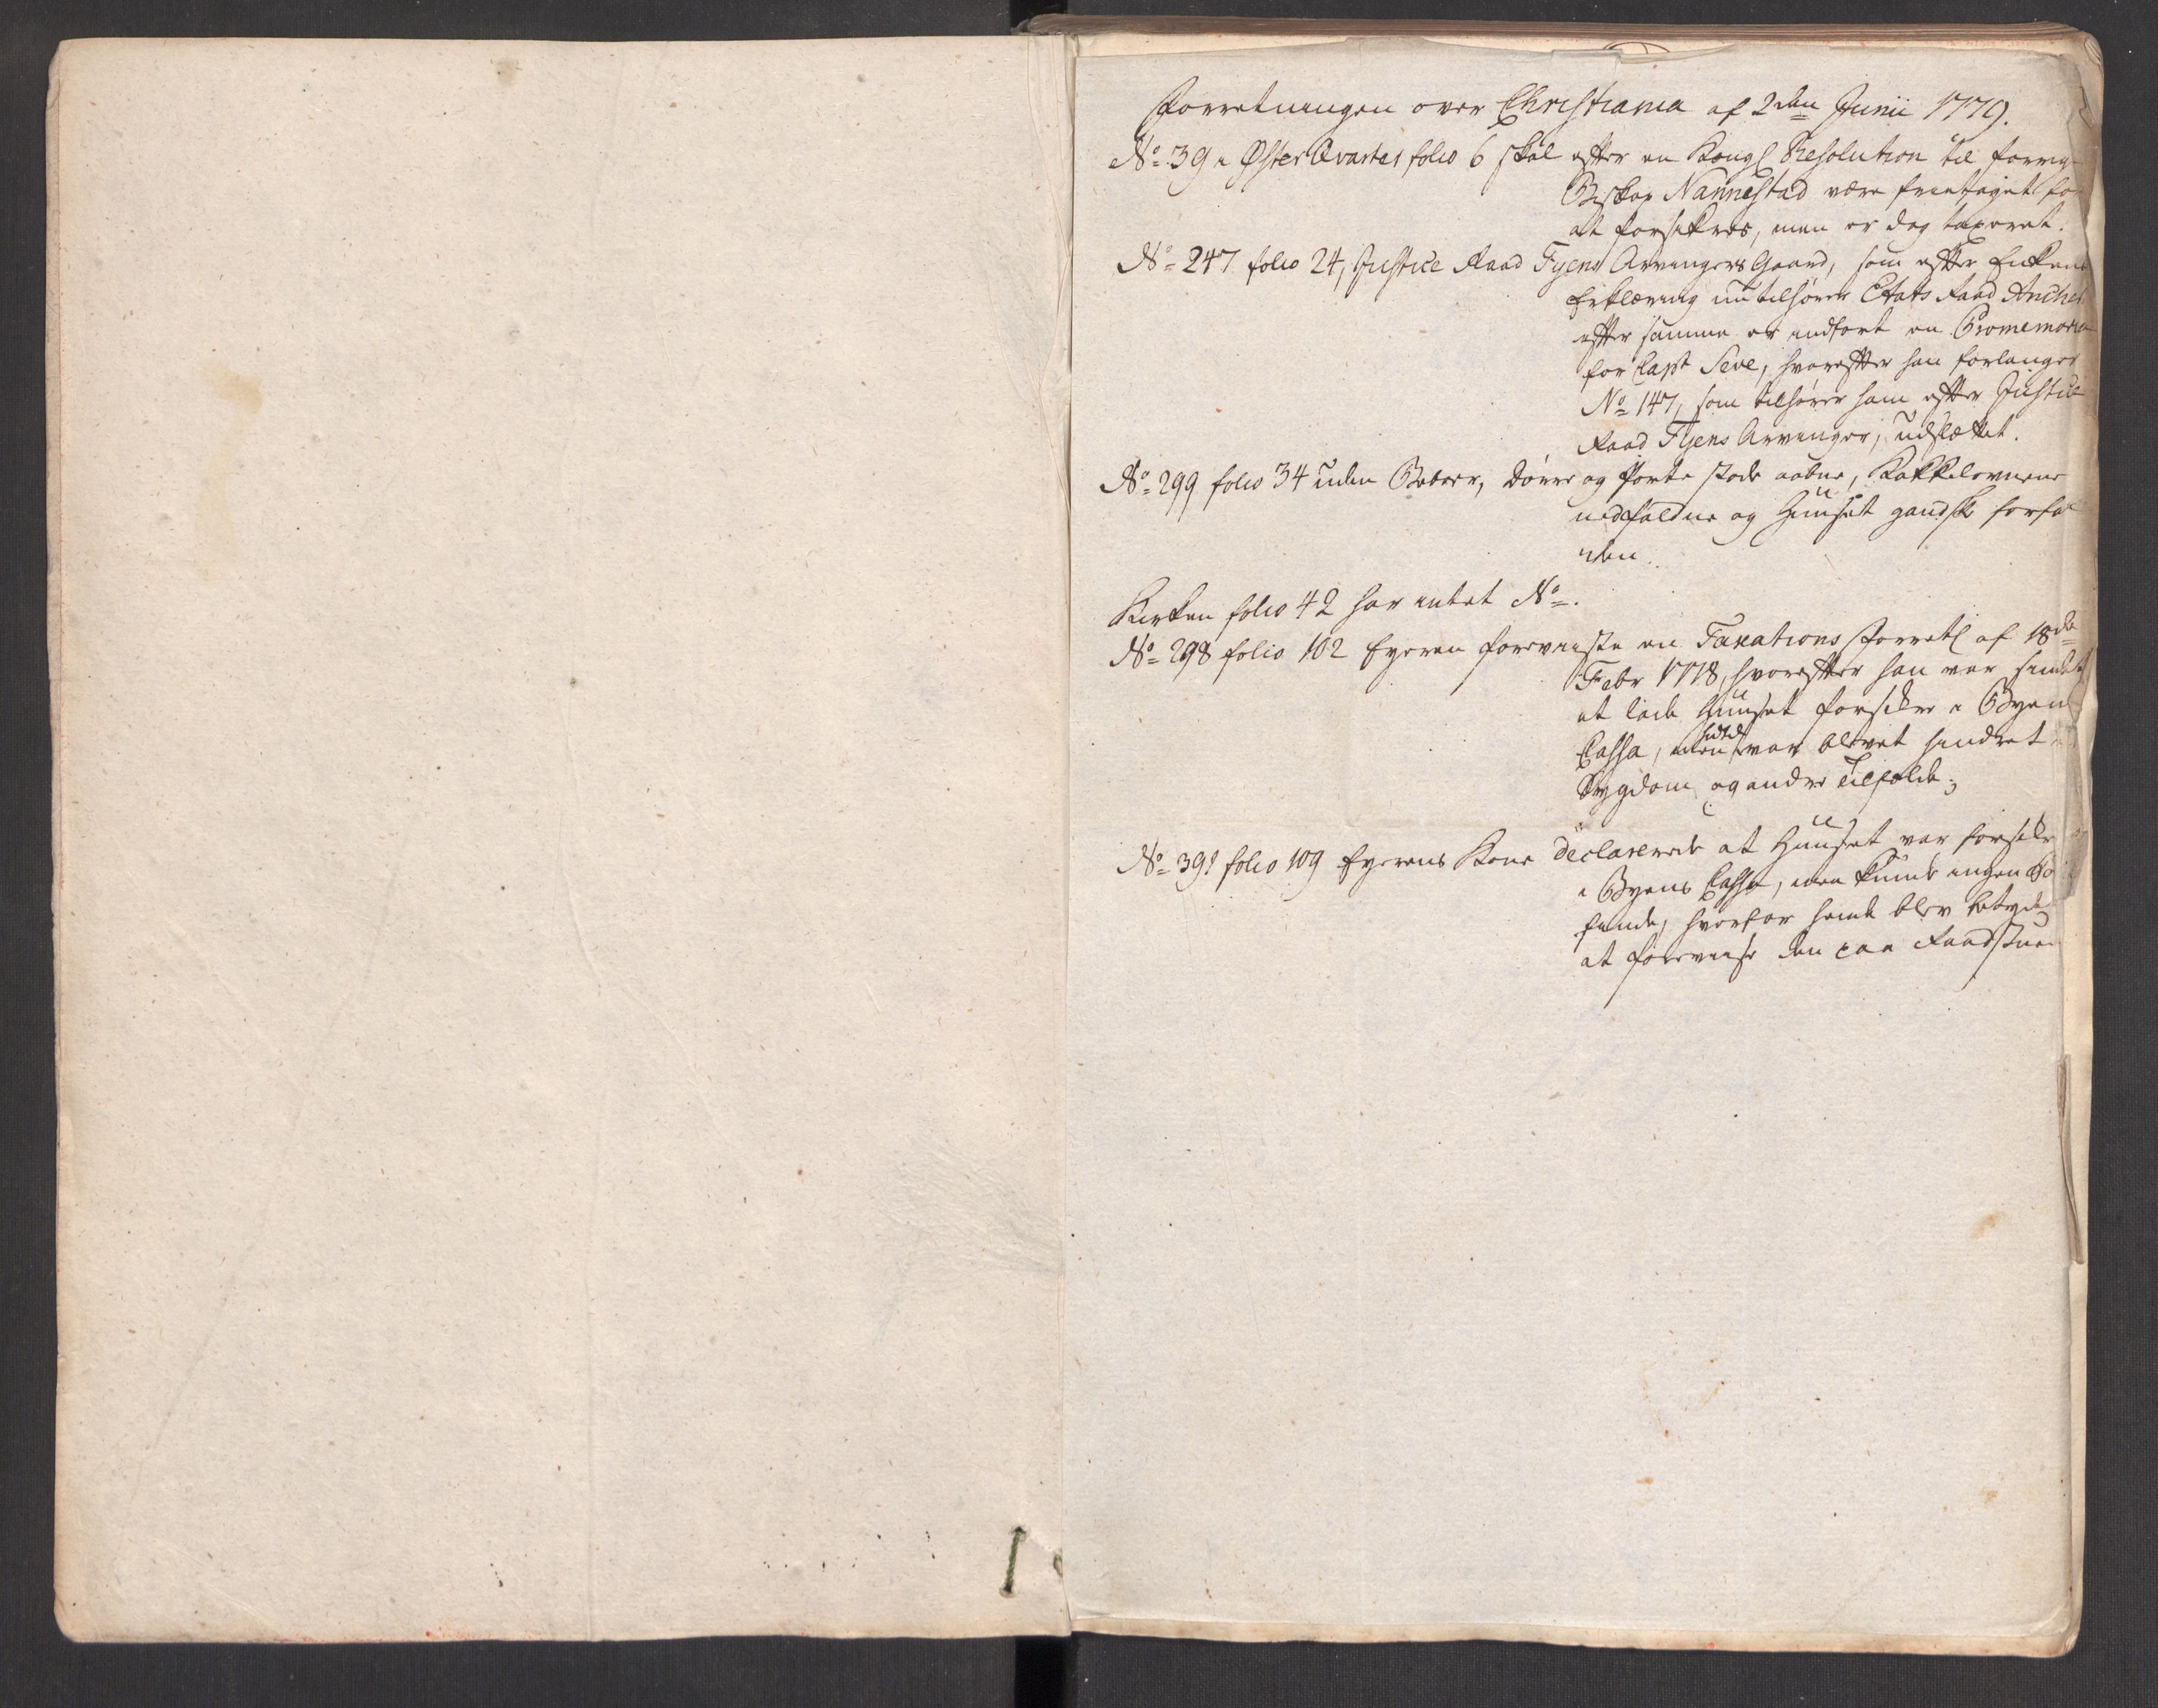 Forretningen over Christiania af 2den Junii 1779.
No 39 i Øster Qvarter folio 6 skal efter en Kongl Resolution til forrige
Biskop Nannestad være fritaget for
at forsikres, men er dog taxeret.
No 247 folio 24, Justice Raad Fyens Arvingers Gaard, som efter Enkens
Erklæring nu tilhører Etats Raad Ancher
efter samme er indført en Promemoria
for Capt Seve, hvorefter han forlanger
No 147, som tilhører ham efter Justice
Raad Fyens Arvinger, udslættet.
No 299 folio 34 uden Beboer, Dørre og Porte stode aabne, Kakkelovnene
nedfaldne og Huuset gandske forfal
den.
Kirken folio 42 har intet No.
No 298 folio 102 Eyeren foreviiste en Taxations Forretl af 18de
Febr 1778, hvorefter han var sindet
at lade Huuset forsikre i Byens
Cassa, men hidtil var blevet hindret
Sygdom og andre Tilfælde;
No 391 folio 109 Eyerens Kone declarerede at Huuset var forsikr
i Byens Cassa, men kunde ingen
finde, hvorfor hende blev betyde
at foreviise den paa Raadstuen